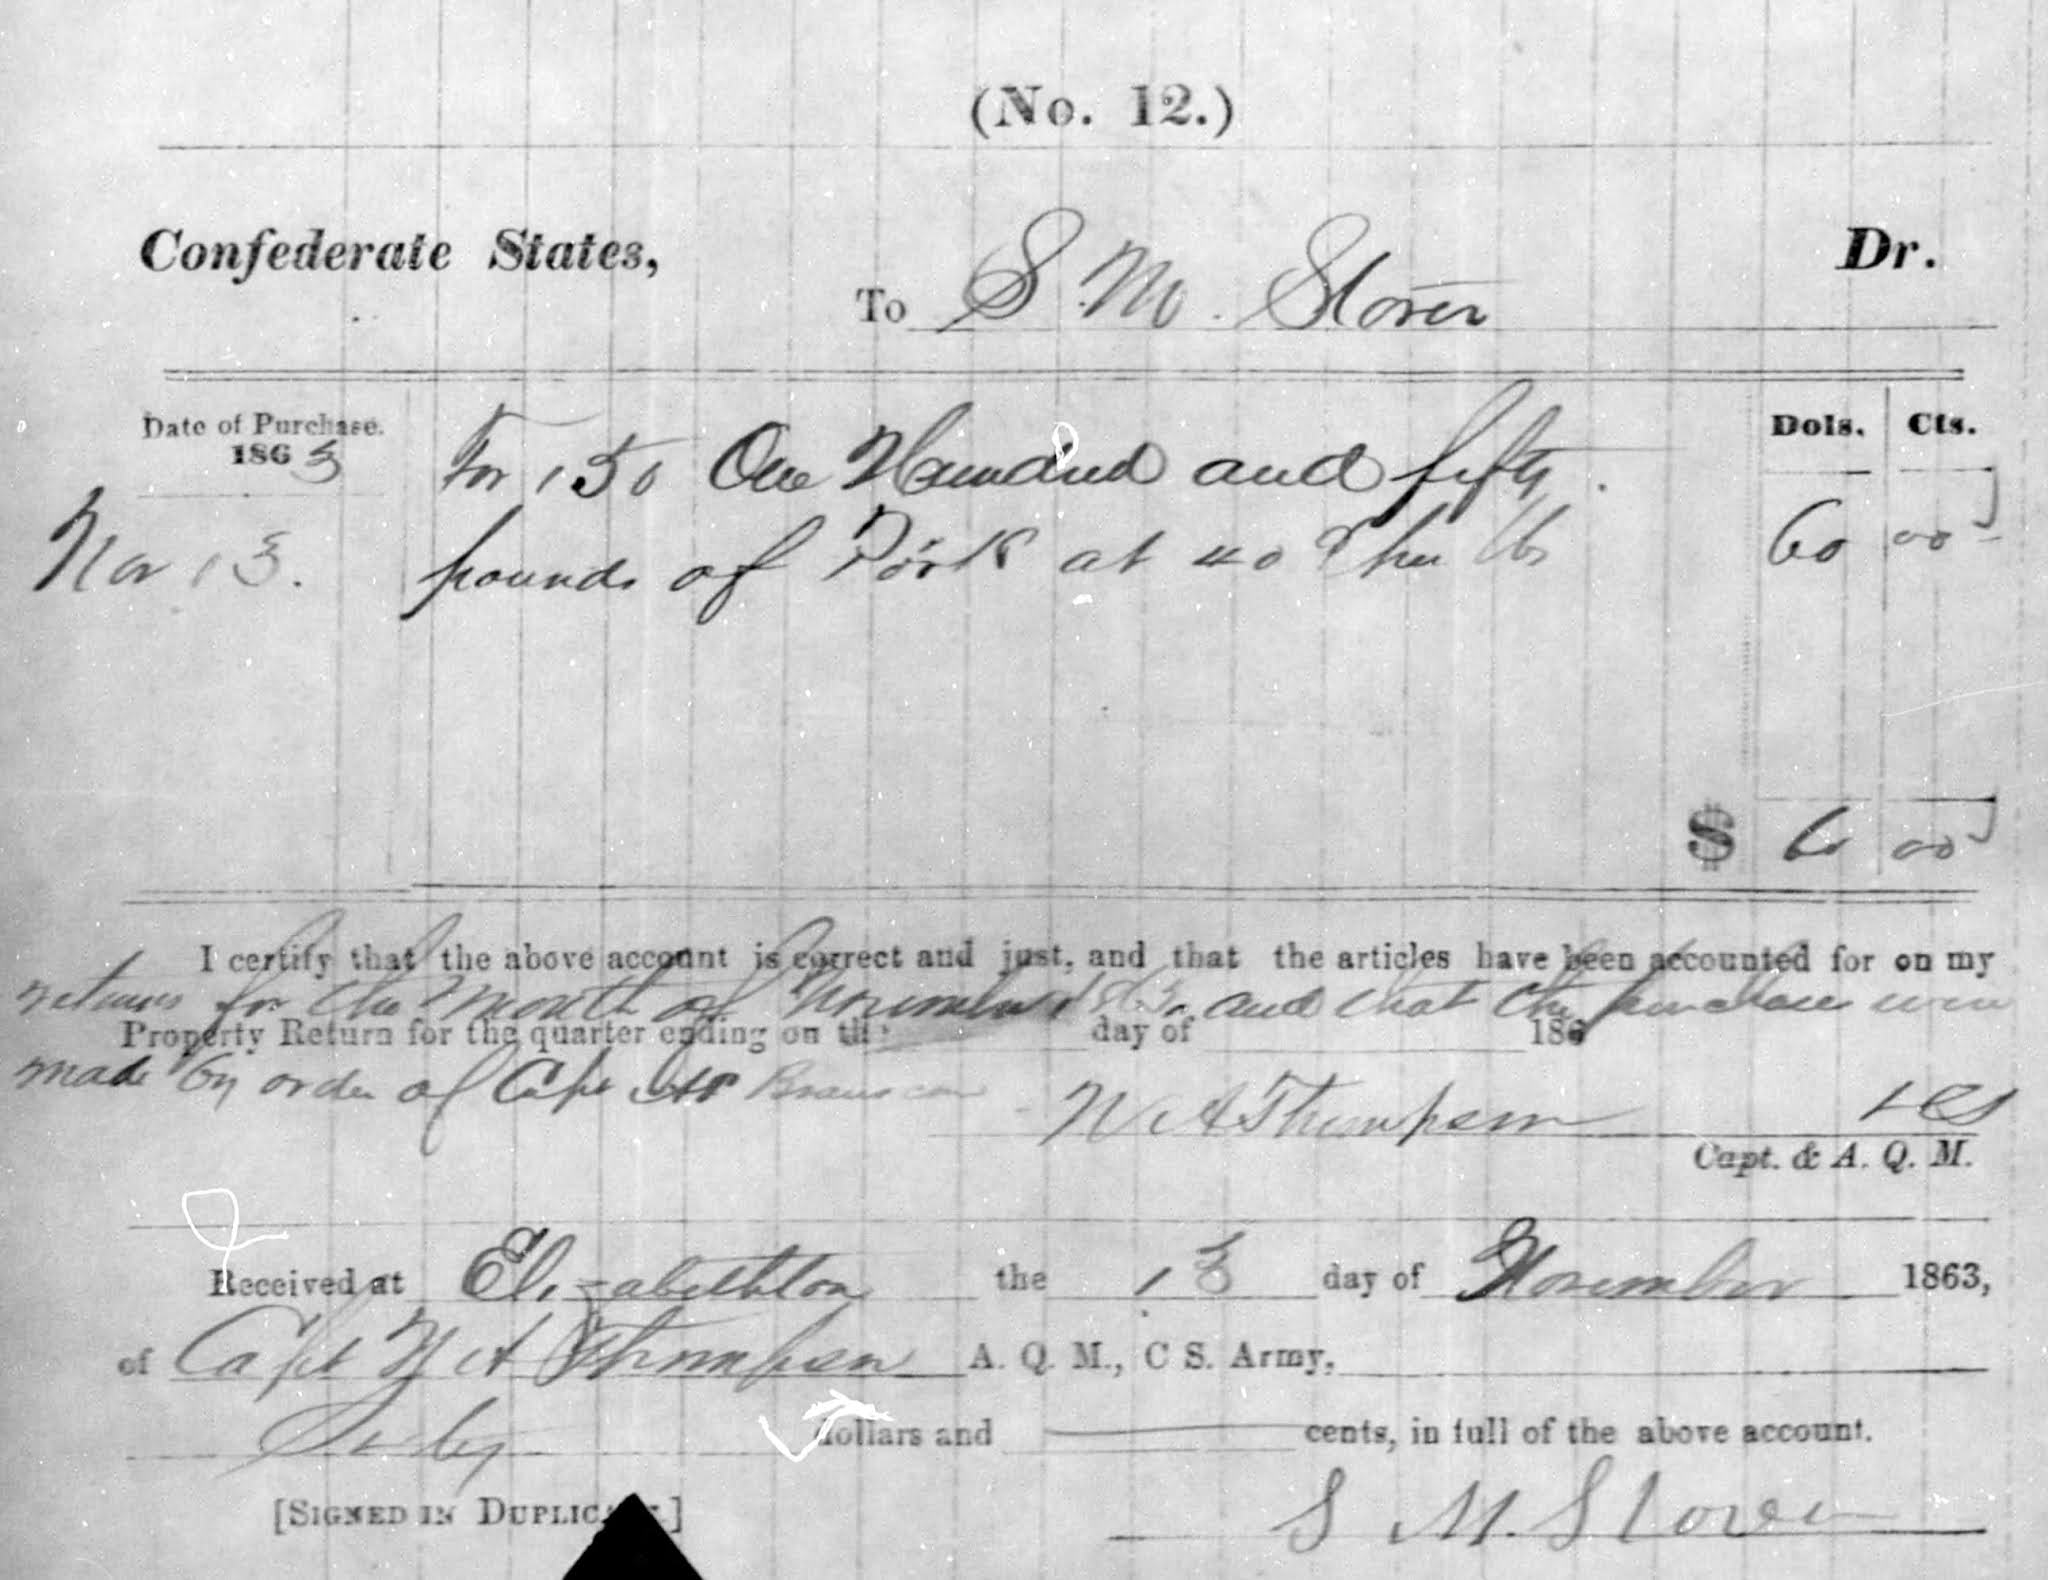 (No. 12.)
Confederate States,
To S. M. Stover Dr.
Date of Purchase. Dols. Cts.
1863 For 150 One Hundred and fifty
Nov 13. pounds of Pork at 40 ₵ per lb 60 00
$ 60 00
I certify that the above account is correct and just, and that the articles have been accounted for on my
returns for the month of November 1863. and that the purchases were
Property Return for the quarter ending on the day of 186
made by order of Capt
W A Thompson
Capt. & A. Q. M.
Received at Elizabethton the 13 day of November 1863,
of Capt W A Thompson A. Q. M., C S. Army,
Sixty dollars and cents, in full of the above account.
[SIGNED IN DUPLICATE.]
S M. Stover